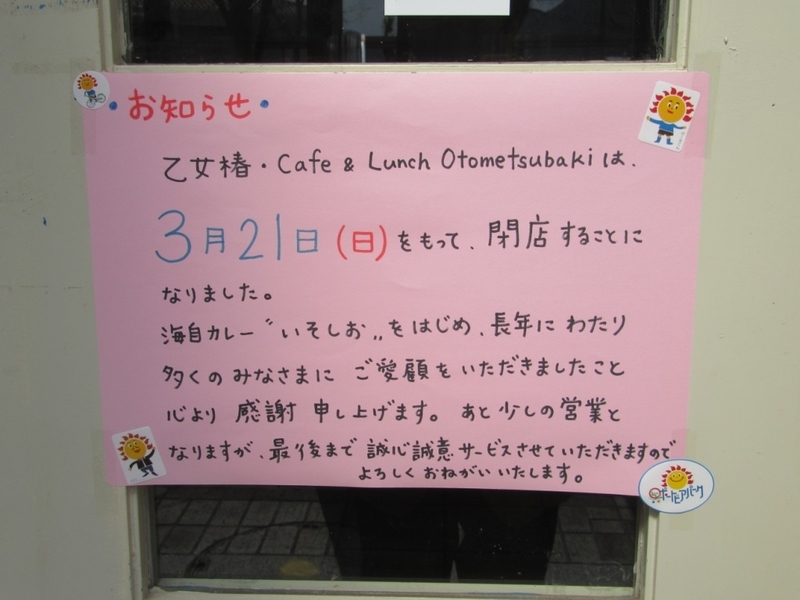 ・お知らせ・
乙女椿・Cafe & Lunch Otometsubakiは、
3月21日(日)をもって、閉店することに
なりました。
海自カレー〝いそしお〟をはじめ、長年にわたり
多くのみなさまに ご愛顧をいただきましたこと
心より 感謝 申し上げます。 あと少しの営業と
なりますが、最後まで 誠心誠意サービスさせていただきますので
よろしくおねがいいたします。
ポートピアパーク